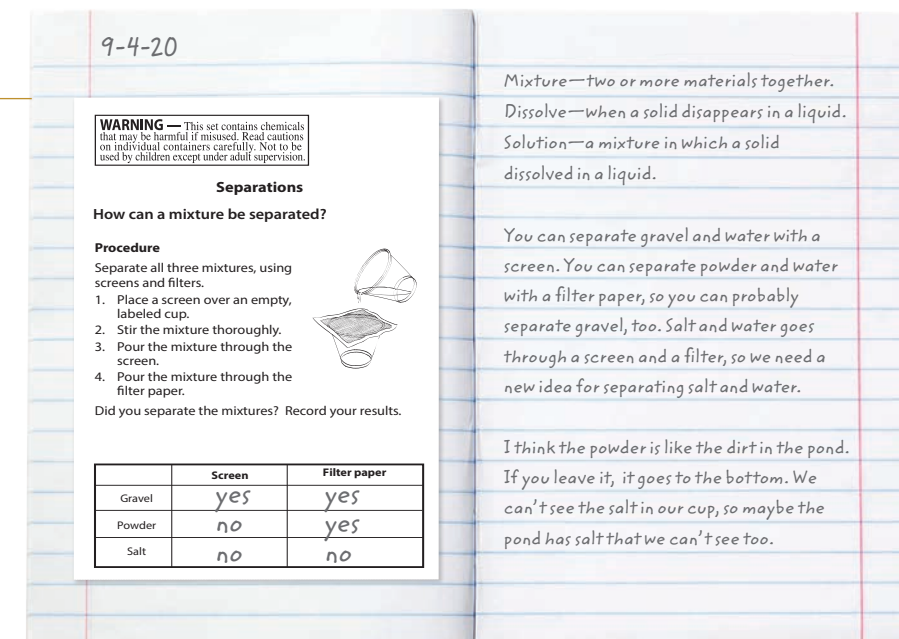 9-4-20
WARNING — This set contains chemicals
that may be harmful if misused. Read cautions
on individual containers carefully. Not to be
used by children except under adult supervision.
Separations
How can a mixture be separated?
Procedure
Separate all three mixtures, using
screens and filters.
1. Place a screen over an empty,
labeled cup.
2. Stir the mixture thoroughly.
3. Pour the mixture through the
screen.
4. Pour the mixture through the
filter paper.
Did you separate the mixtures? Record your results.
Screen Filter paper
Gravel yes yes
Powder no yes
Salt no no
Mixture—two or more materials together.
Dissolve—when a solid disappears in a liquid.
Solution—a mixture in which a solid
dissolved in a liquid.
You can separate gravel and water with a
screen. You can separate powder and water
with a filter paper, so you can probably
separate gravel, too. Salt and water goes
through a screen and a filter, so we need a
new idea for separating salt and water.
I think the powder is like the dirt in the pond.
If you leave it, it goes to the bottom. We
can't see the salt in our cup, so maybe the
pond has salt that we can't see too.